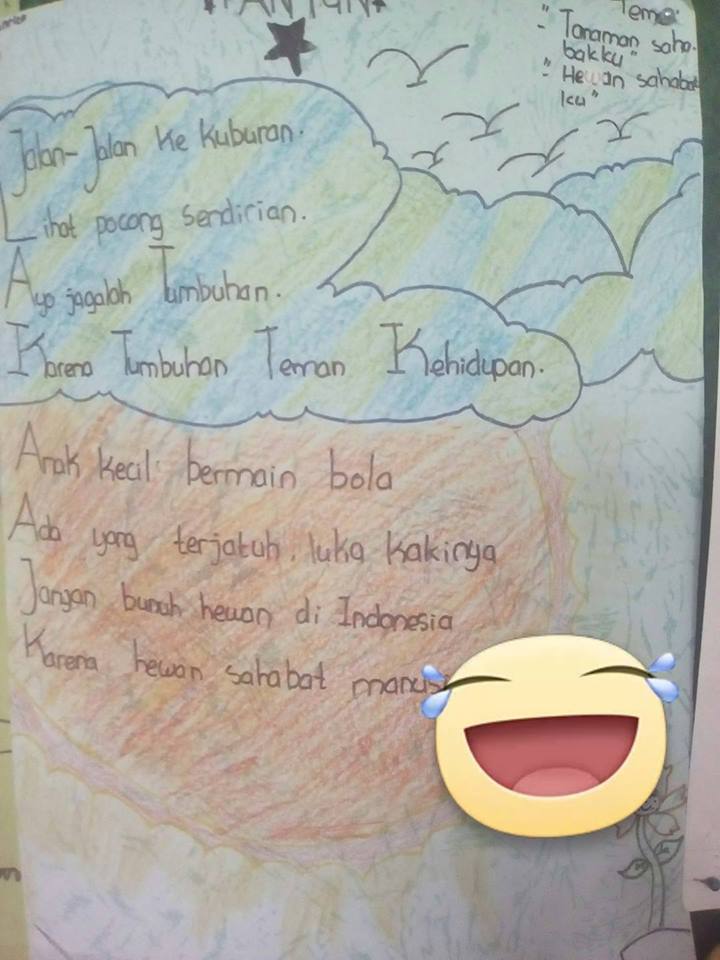 PANTUN
Tema:
- "Tanaman saha-
bakku"
- "Hewan sahabat
ku"
Jalan-Jalan Ke Kuburan.
Lihat pocong sendirian.
Ayo jagalah Tumbuhan.
Karena Tumbuhan Teman Kehidupan.
Anak kecil bermain bola
Ada yang terjatuh, luka kakinya
Jangan bunuh hewan di Indonesia
Karena hewan sahabat